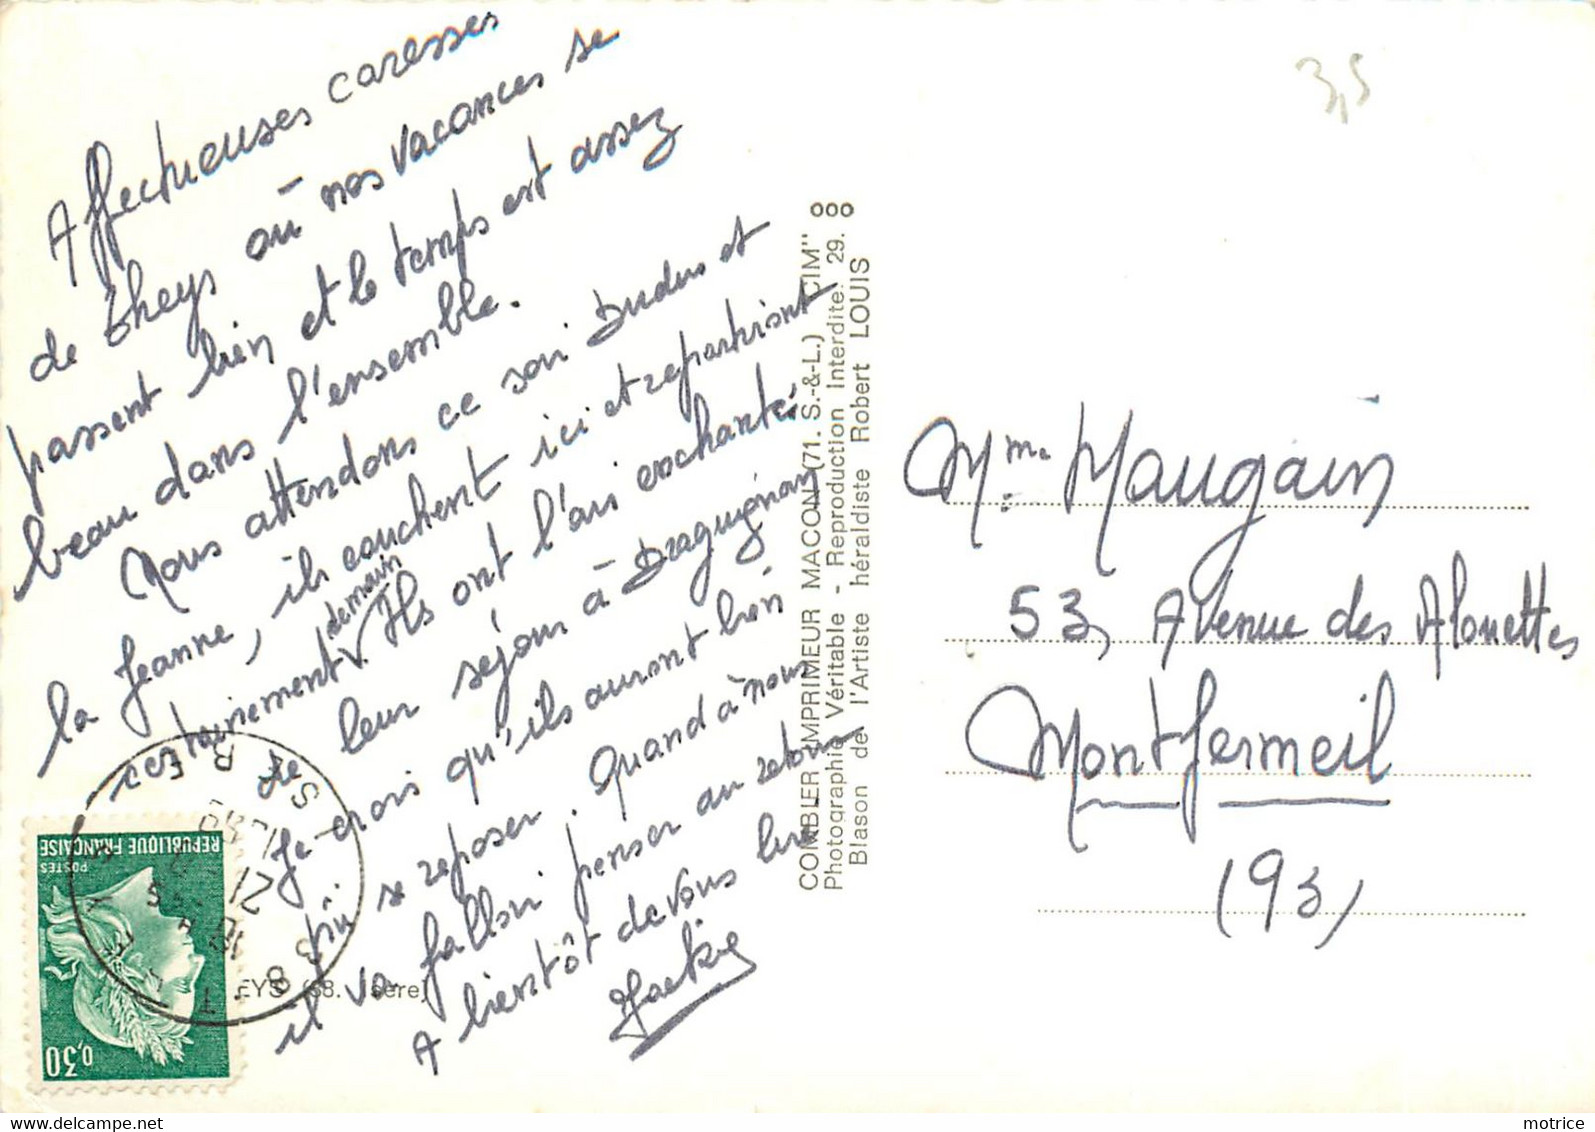 Affectueuses caresses
de theys où nos vacances se
passent bien et le temps est assez
beau dans l'ensemble.
Nous attendons ce soir Dudus et
la Jeanne, ils couchent ici et repartiront
certainement demain. Ils ont l'air enchantés
de leur séjour à Draguignan
Je crois qu'ils auront bien
pu se reposer. Quand à nous
il va falloir penser au retour
A bientôt de vous lire
Jackie
COMBIER IMPRIMEUR MACON (71. S.-&-L.) "CIM"
Photographie Véritable - Reproduction Interdite. 29.
Blason de l'Artiste héraldiste Robert LOUIS
3,5
Mme Maugain
53, Avenue des Alouettes
Montfermeil
(93)
POSTES
REPUBLIQUE FRANÇAISE
0,30
38 THEYS
ISERE
EYS (38. Isère)